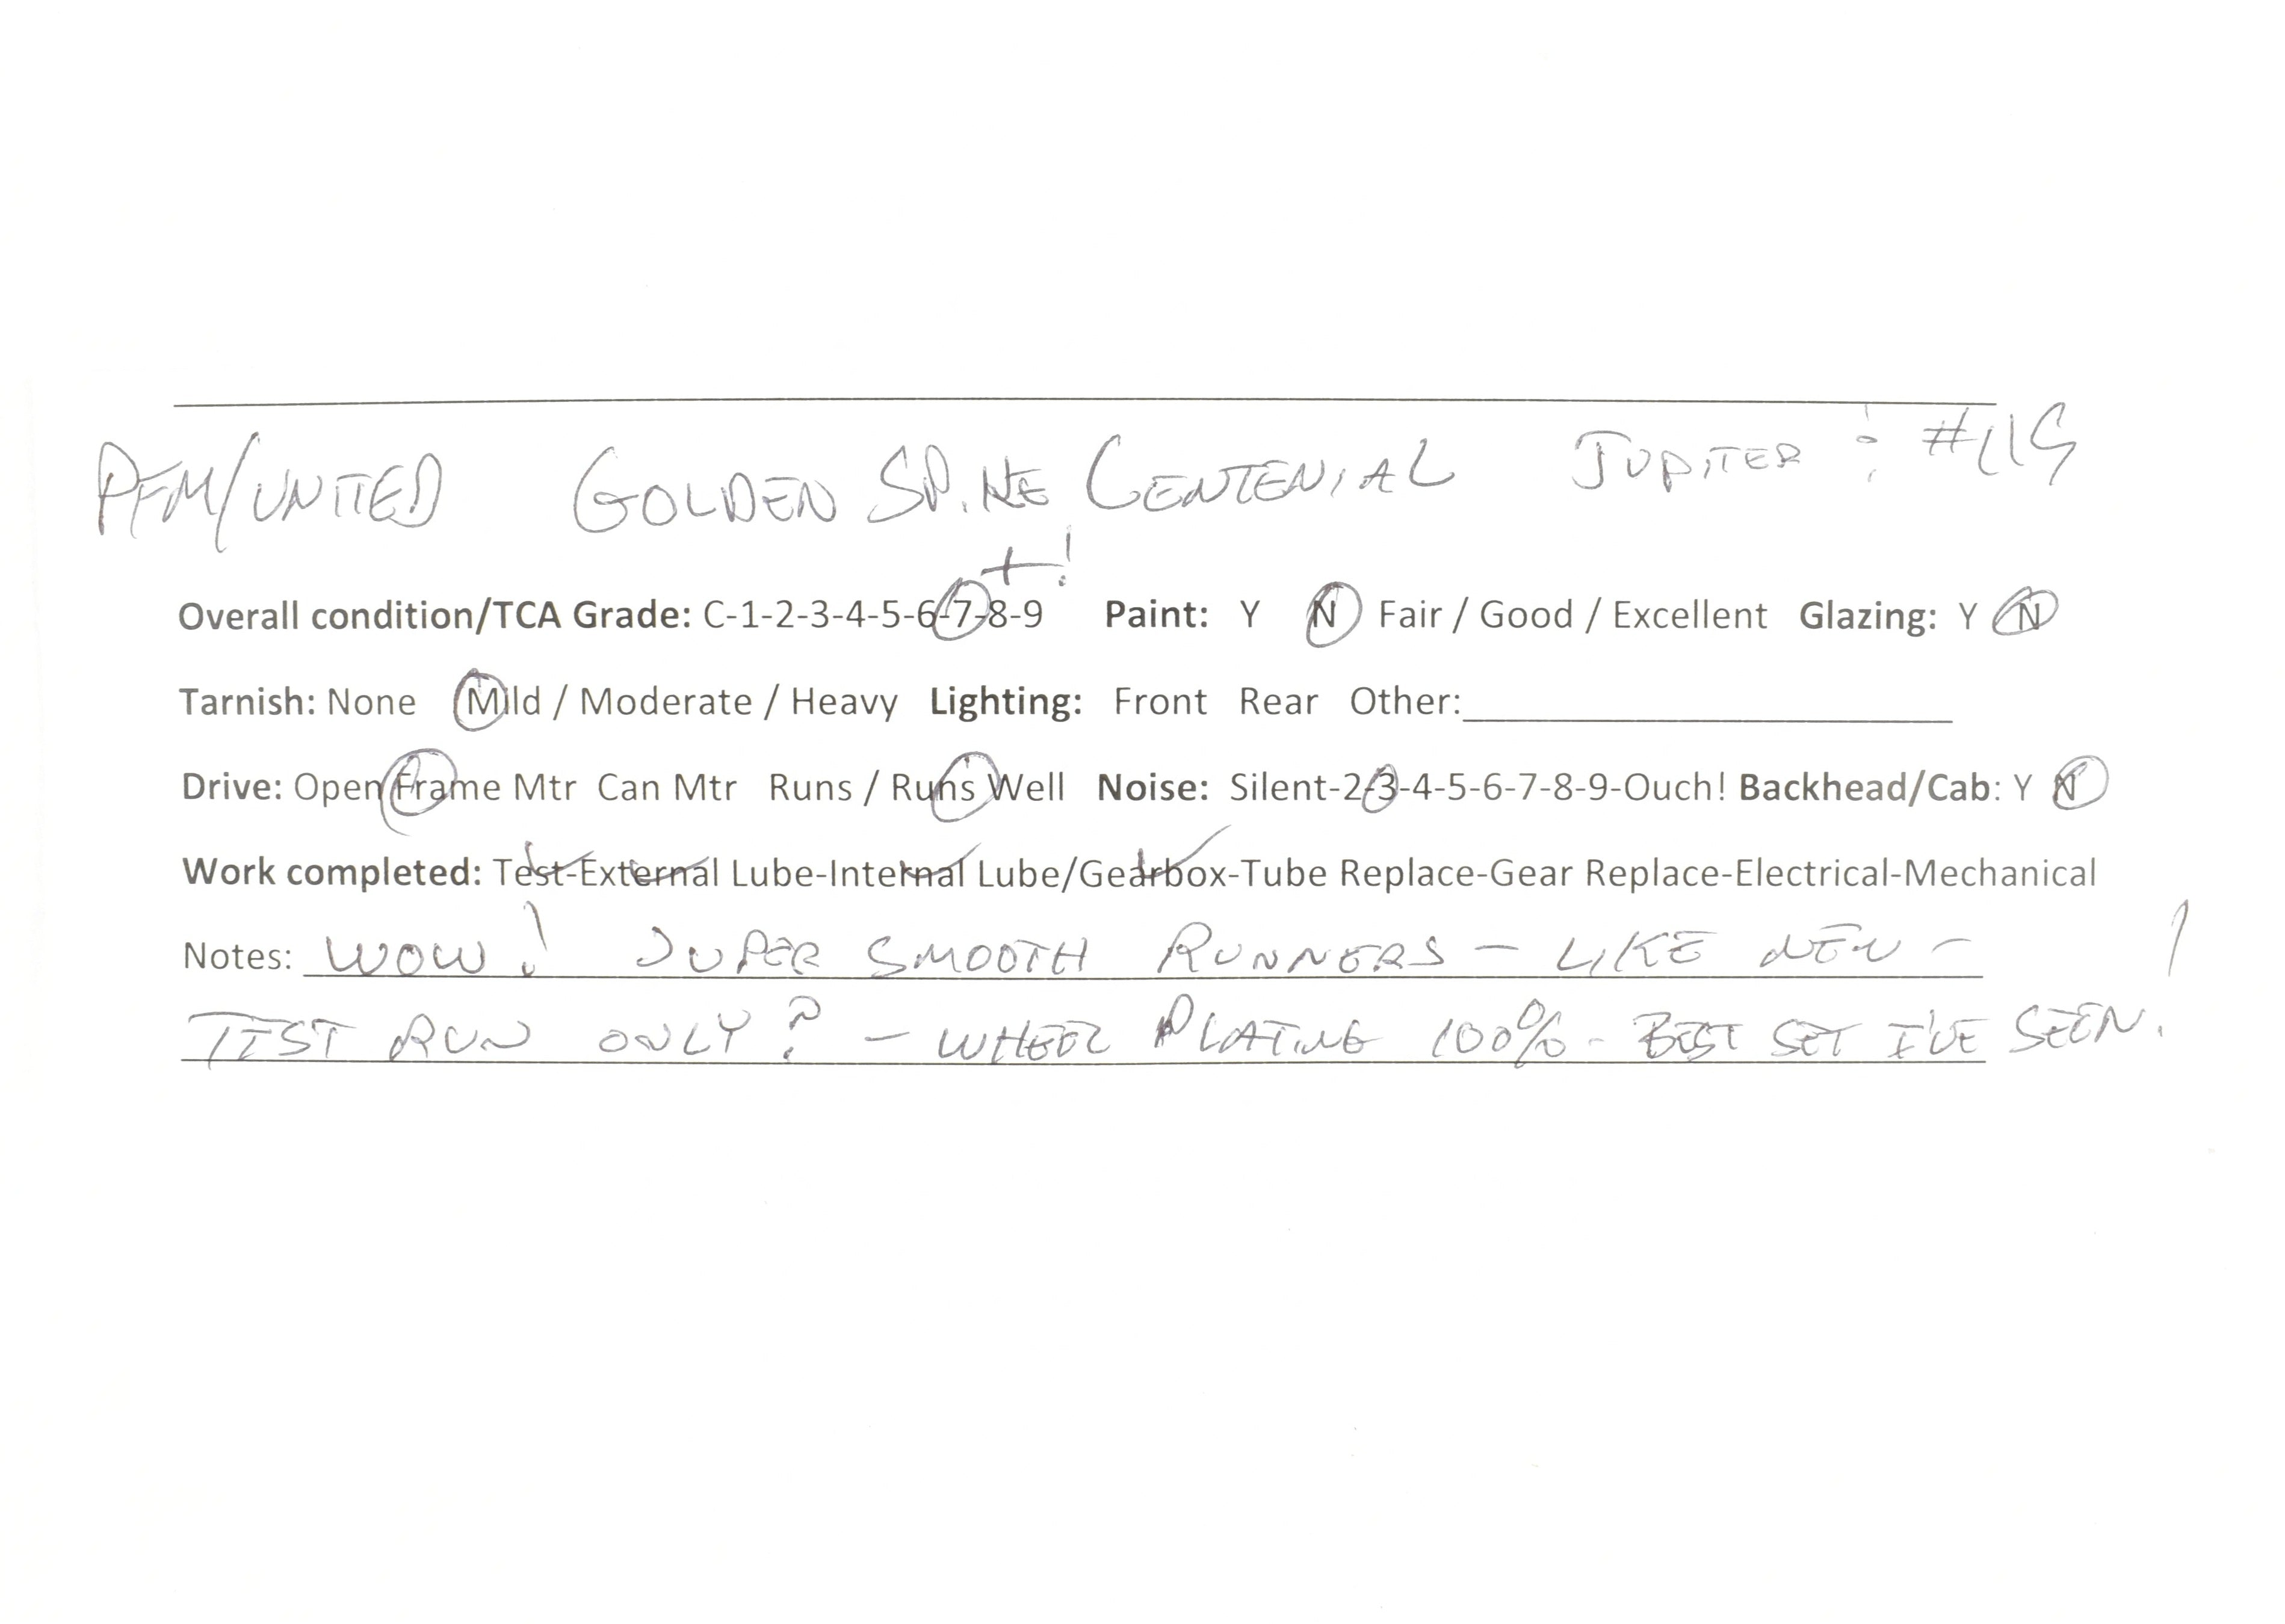 PFM/UNITED GOLDEN SPIKE CENTENIAL JUPITER : #119
+!
Overall condition/TCA Grade: C-1-2-3-4-5-6-7-8-9 Paint: Y N Fair / Good / Excellent Glazing: Y N
Tarnish: None Mild / Moderate / Heavy Lighting: Front Rear Other:
Drive: Open Frame Mtr Can Mtr Runs / Runs Well Noise: Silent-2-3-4-5-6-7-8-9-Ouch! Backhead/Cab: Y N
Work completed: Test-External Lube-Internal Lube/Gearbox-Tube Replace-Gear Replace-Electrical-Mechanical
Notes: WOW! SUPER SMOOTH RUNNERS - LIKE NEW -
TEST RUN ONLY? - WHEEL PLATING 100% - BEST SET I'VE SEEN!